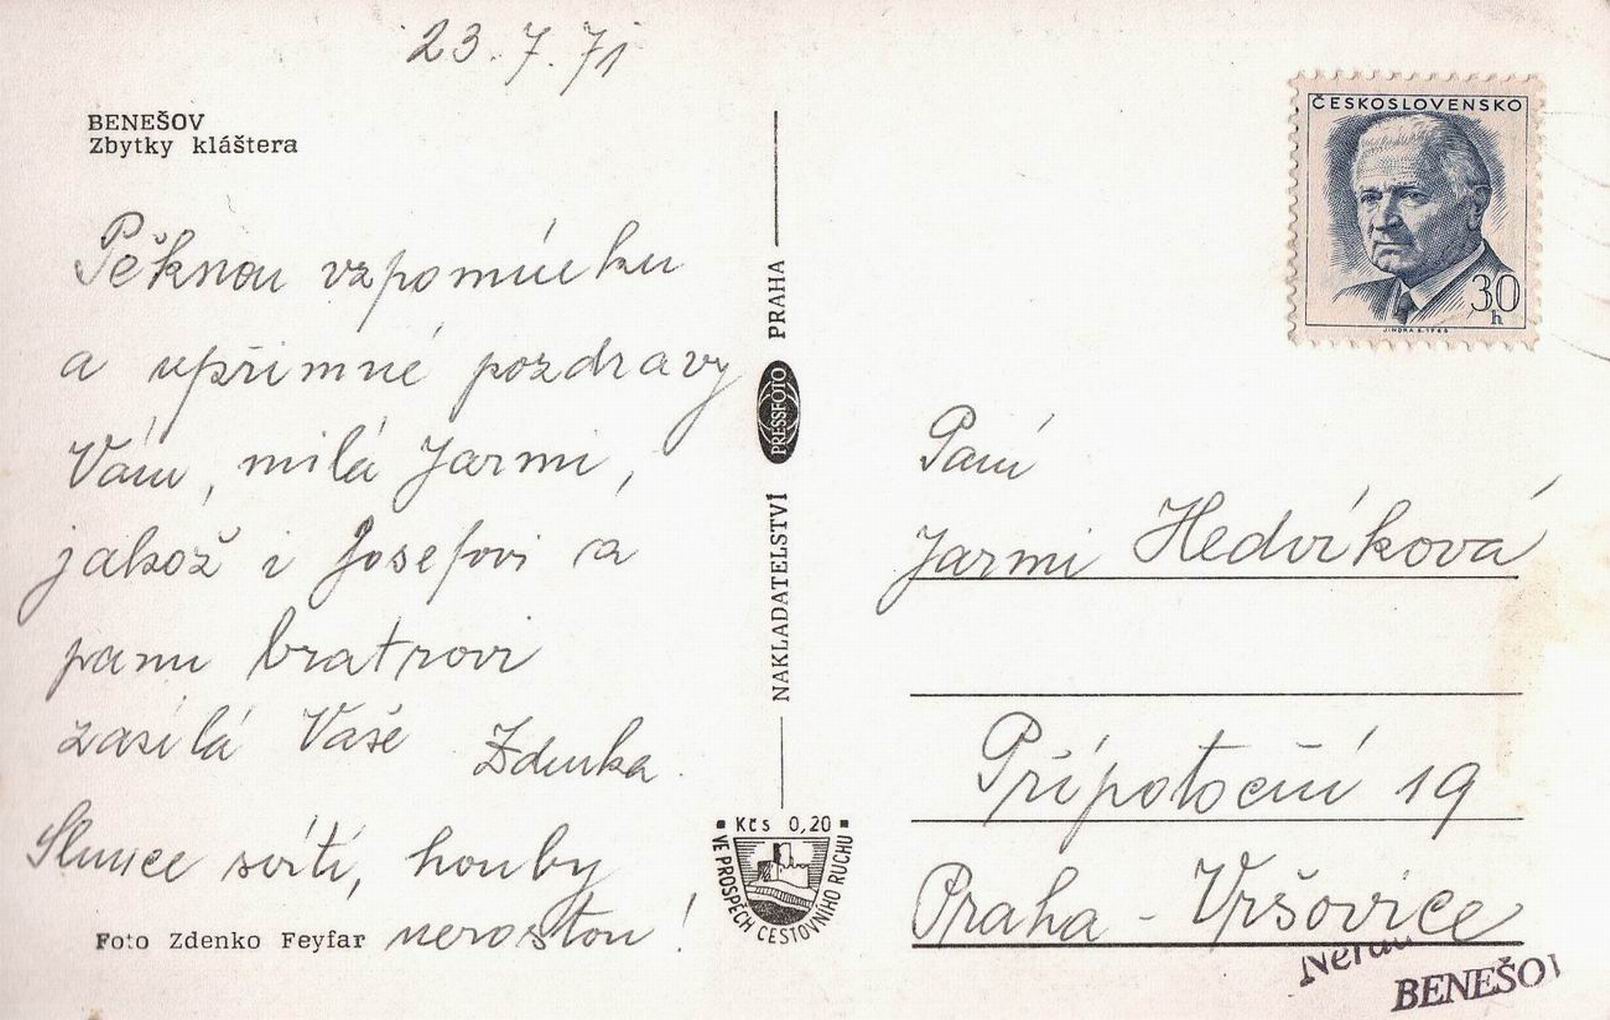 23.7.71
BENEŠOV
Zbytky kláštera
Pěknou vzpomínku
a upřimné pozdravy
Vám, milá Jarmi,
jakož i Josefovi a
panu bratrovi
zasílá Vaše Zdenka.
Slunce svítí, houby
nerostou!
Foto Zdenko Feyfar
NAKLADATELSTVÍ PRESSFOTO PRAHA
Kčs 0,20
VE PROSPĚCH CESTOVNÍHO RUCHU
ČESKOSLOVENSKO
30
h
JINDRA S. 1968
Paní
Jarmi Hedvíková
Přípotoční 19
Praha - Vršovice
BENEŠOV